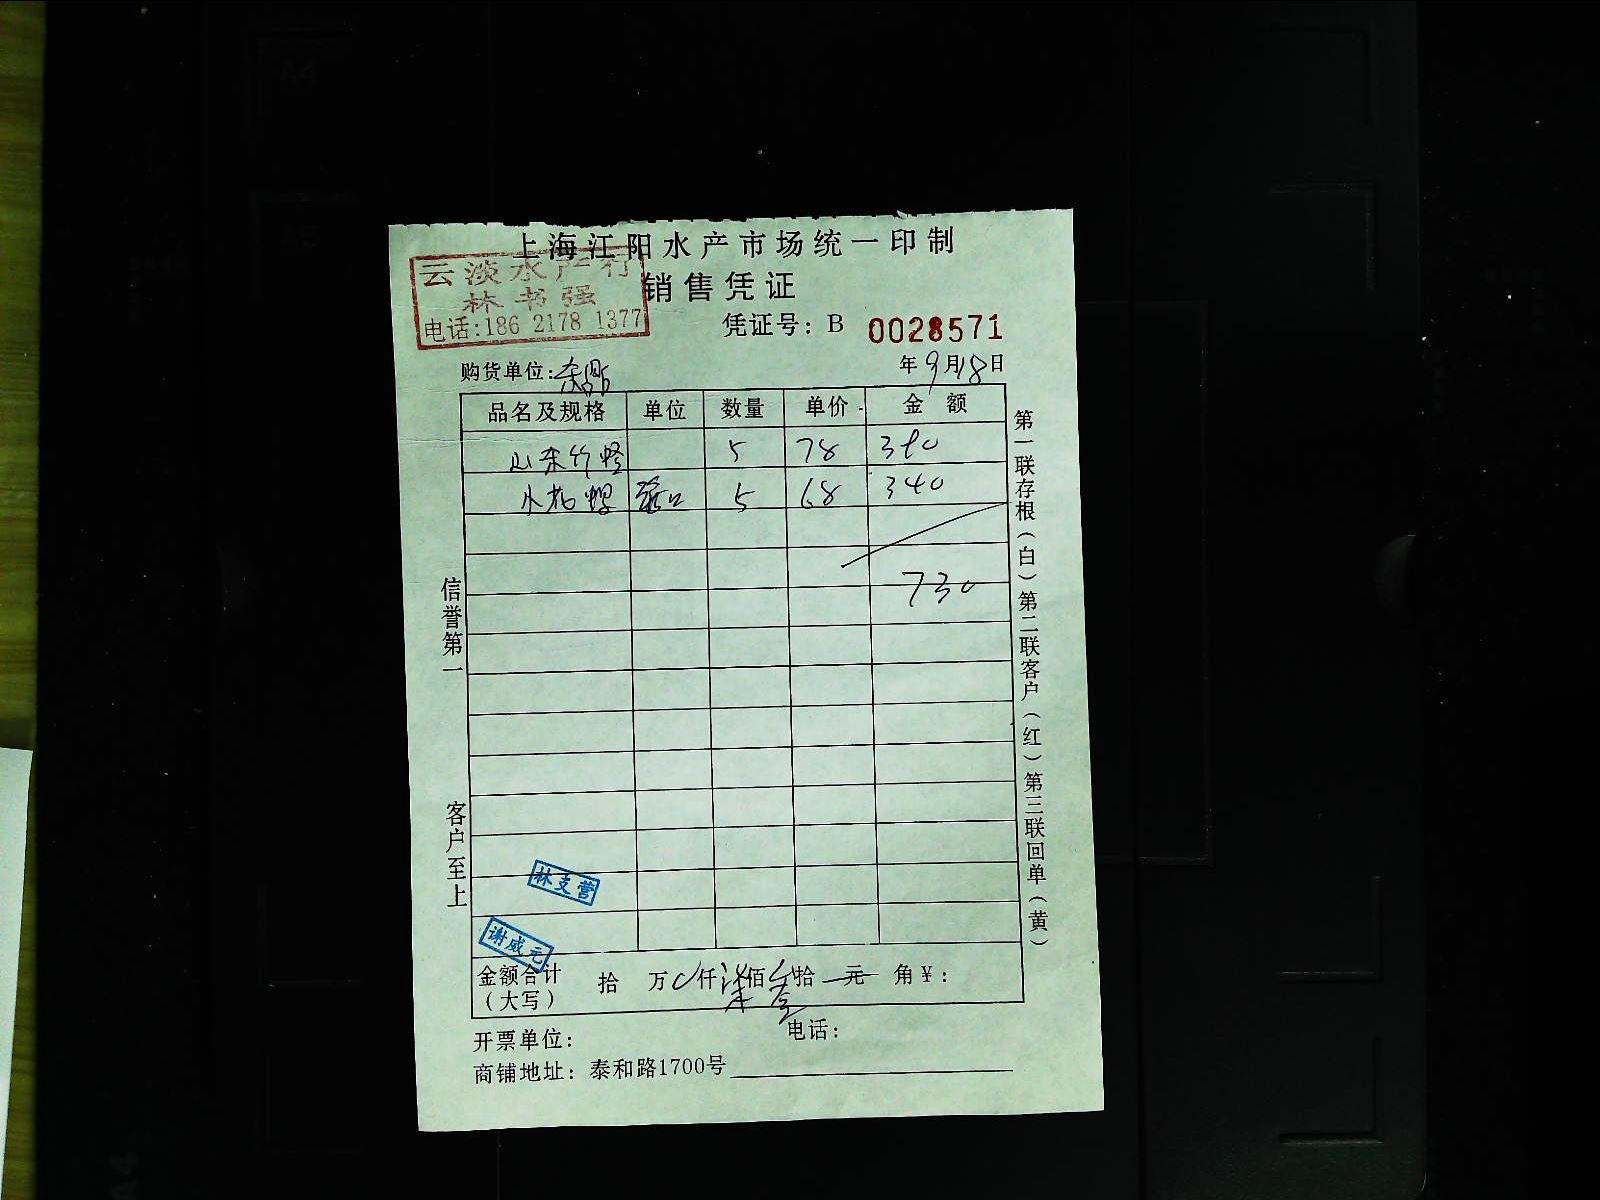 上海江阳水产市场统一印制
云淡水产行
林书强
电话:186 2178 1377
销售凭证
凭证号: B 0028571
购货单位:
年9月18日
品名及规格 单位 数量 单价 金额
山东竹蛏 5 78 390
小花螺 5 68 340
730
信誉第一
客户至上
第一联存根(白)第二联客户(红)第三联回单(黄)
林支营
谢威元
金额合计 拾 万 仟柒佰叁拾 元 角¥:
(大写)
开票单位: 电话:
商铺地址: 泰和路1700号
A4
A5
A4